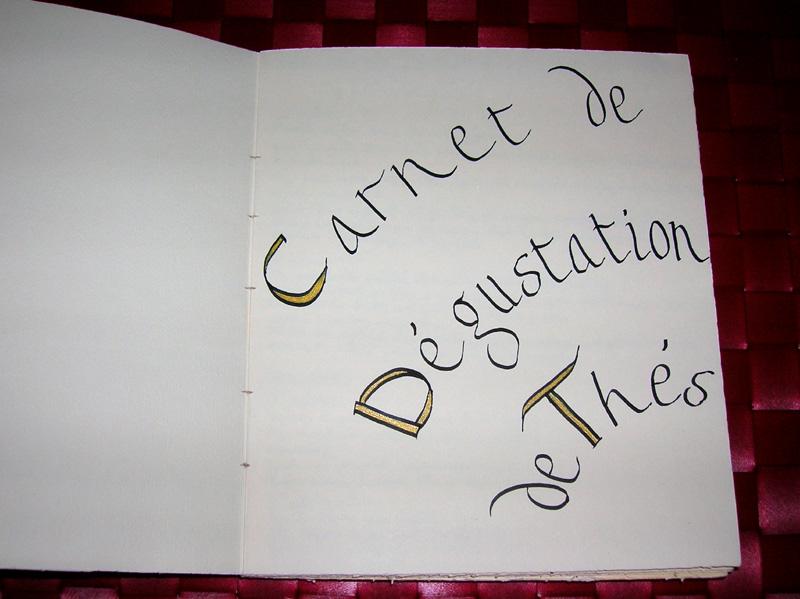 Carnet de
Dégustation
de Thés